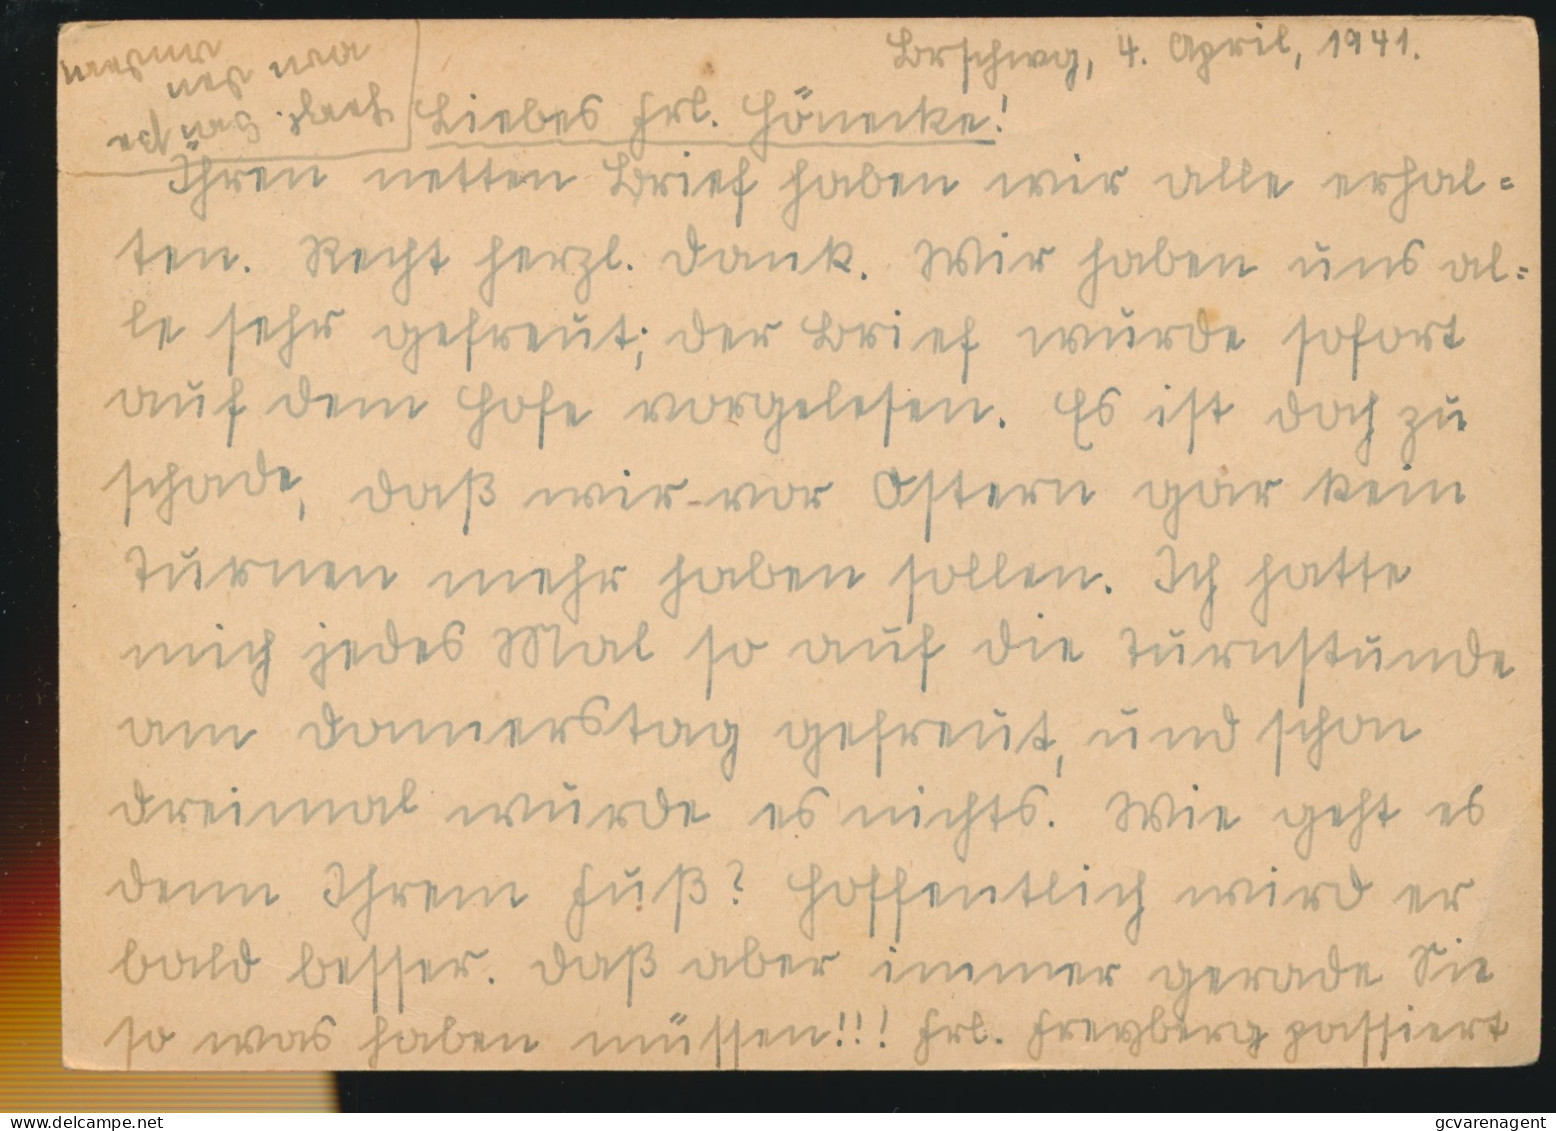 Brschwg, 4. April, 1941.
Liebes Frl. Hönecke!
Ihren netten Brief haben wir alle erhal=
ten. Recht herzl. Dank. Wir haben uns al=
le sehr gefreut; der Brief wurde sofort
auf dem Hofe vorgelesen. Es ist doch zu
schade, daß wir vor Ostern gar kein
Turnen mehr haben sollen. Ich hatte
mich jedes Mal so auf die Turnstunde
am Donnerstag gefreut, und schon
dreimal wurde es nichts. Wie geht es
denn Ihrem Fuß? Hoffentlich wird er
bald besser. Daß aber immer gerade Sie
so was haben müssen!!! Frl. Freyberg passiert
von den anderen
delcampe.net
gcvarenagent